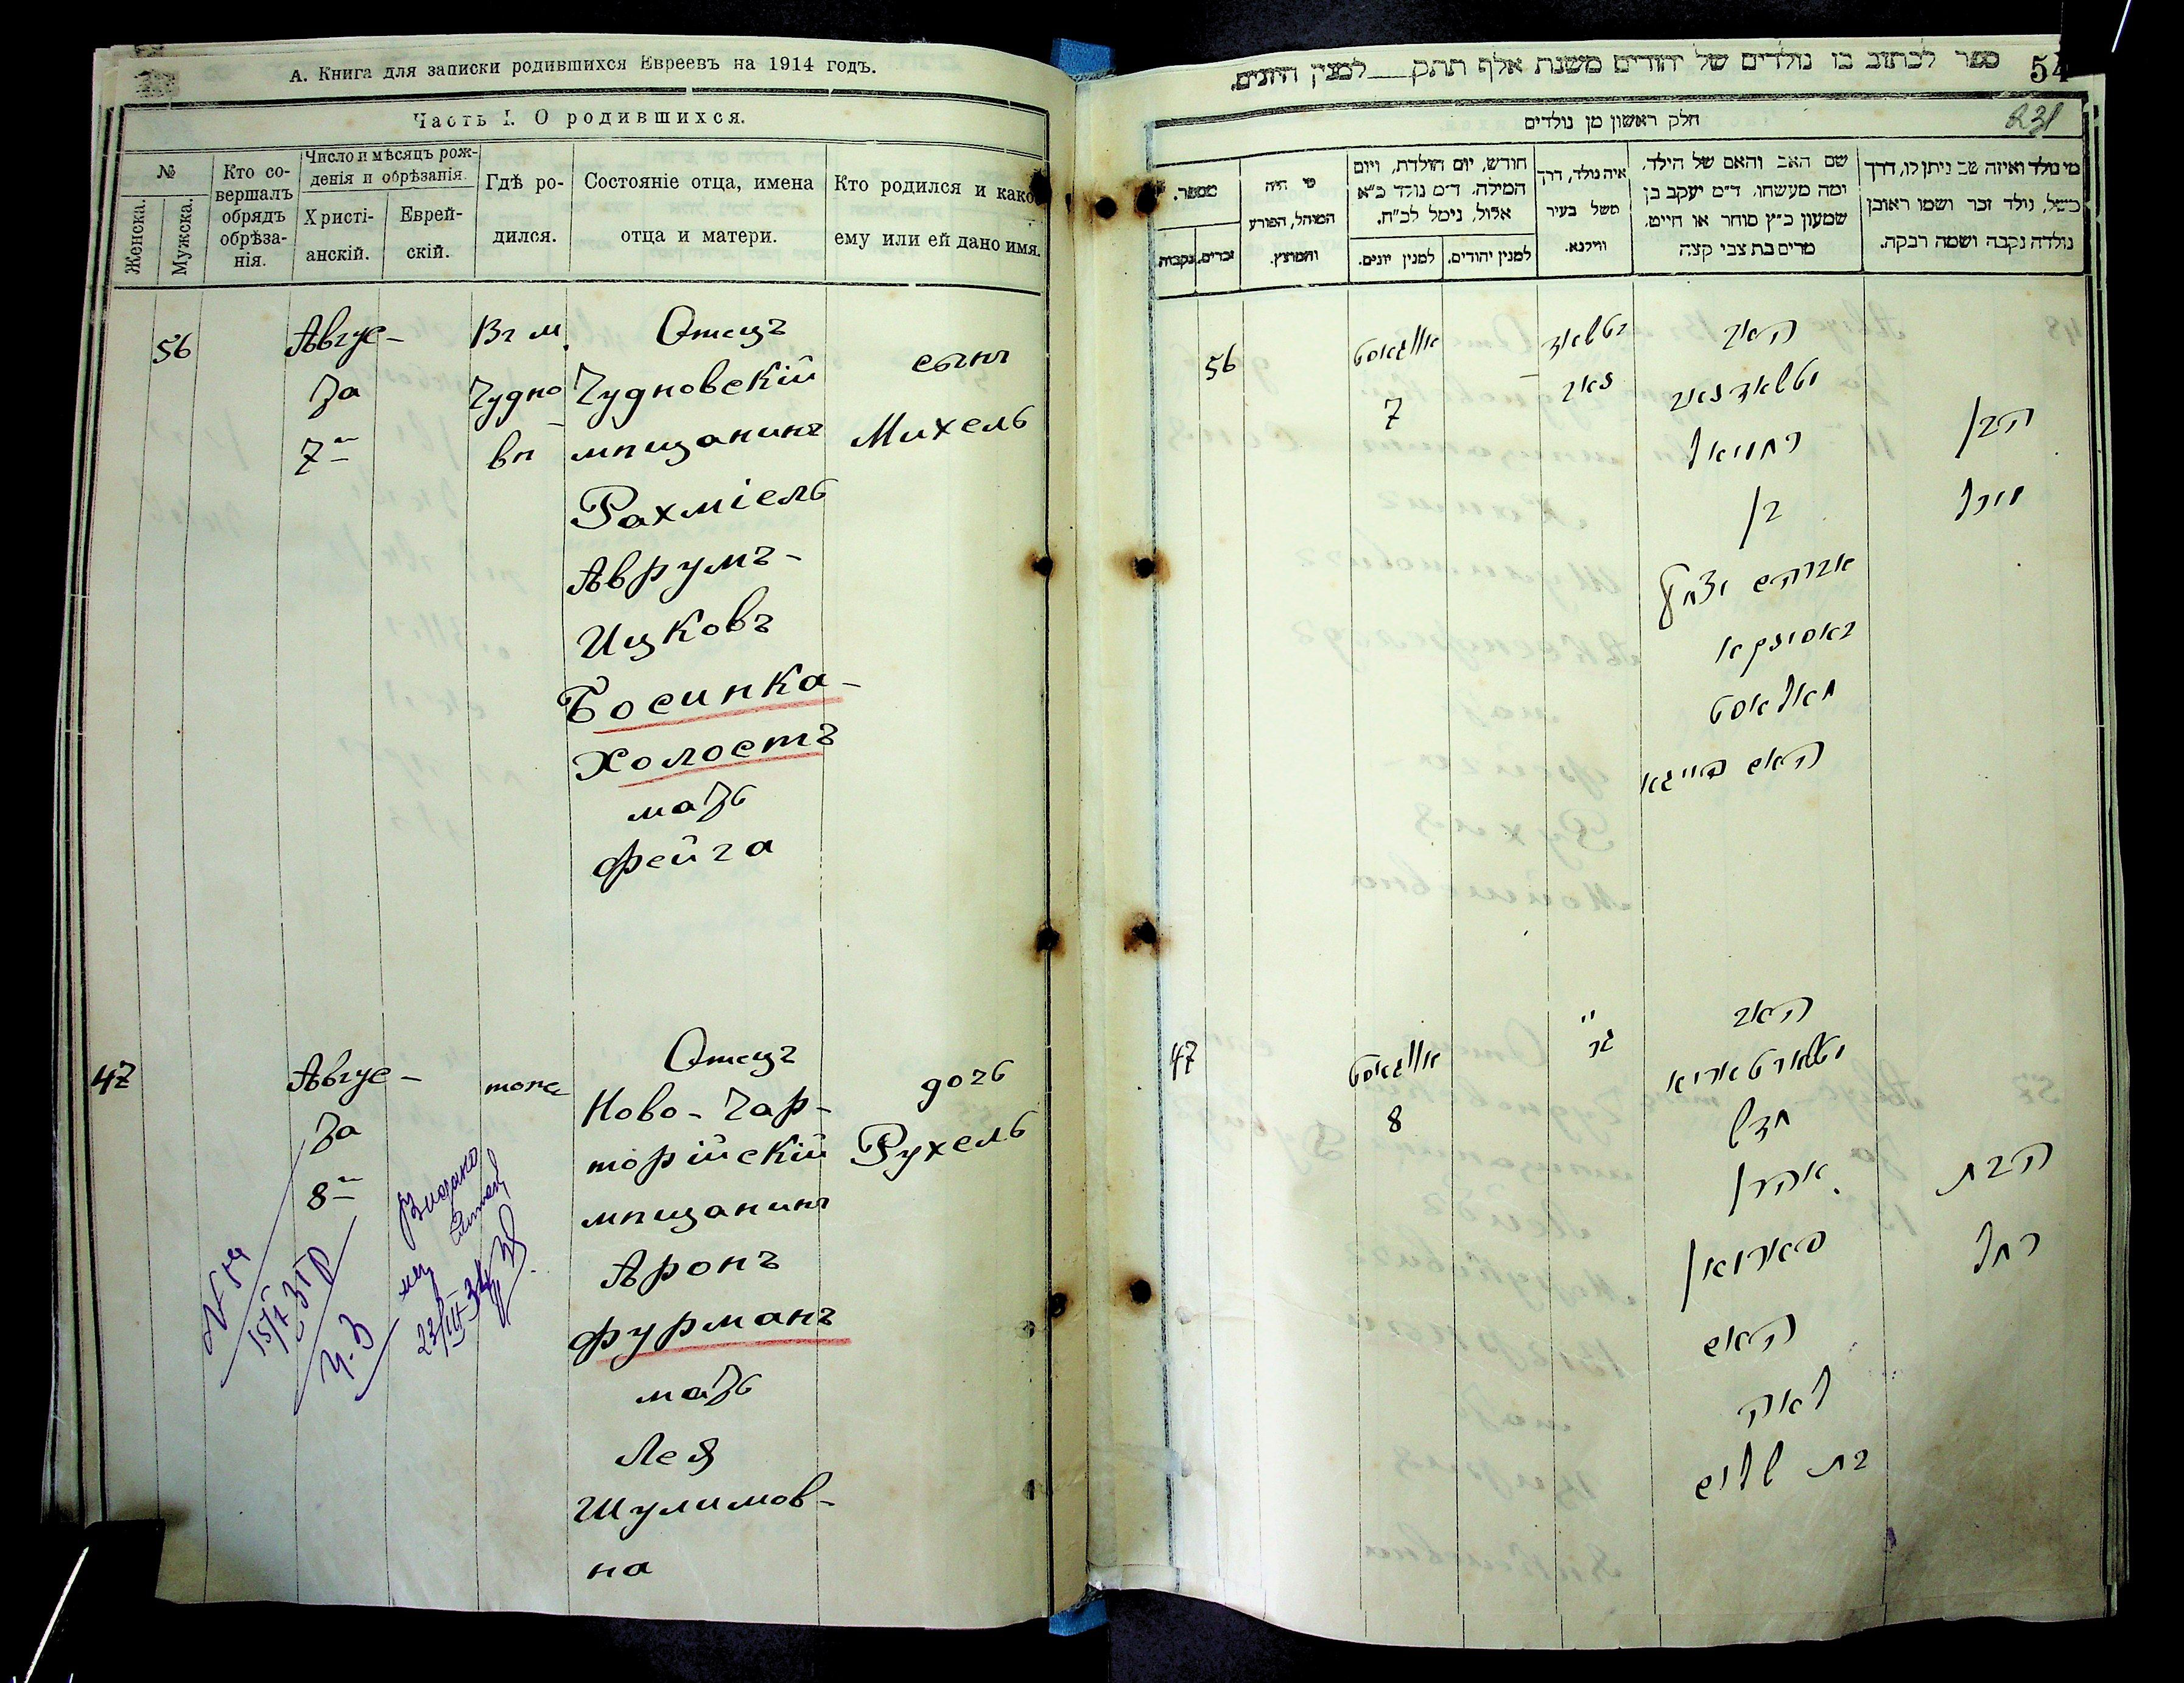 А. Книга для записки родившихся Евреевъ на 1914 годъ.
Часть I. О родившихся.
№
Женска.
Мужска.
Кто со-
вершалъ
обрядъ
обрѣза-
нія.
Число и мѣсяцъ рож-
денія и обрѣзанія.
Христі-
анскій.
Еврей-
скій.
Гдѣ ро-
дился.
Состояніе отца, имена
отца и матери.
Кто родился и како
ему или ей дано имя.
56
Авгус-
та
7го
Въ м.
Чудно-
вѣ
Отецъ
Чудновскій
мѣщанинъ
Рахміель
Аврумъ-
Ицковъ
Босинка-
Холостъ
мать
Фейга
сынъ
Михель
47
Авгус-
та
8го
тоже
Отецъ
Ново-Чар-
торійскій
мѣщанинъ
Аронъ
Фурманъ
мать
Лея
Шулимов-
на
дочь
Рухель
ספר לכתוב בו נולדים של יהודים משנת אלף תתק למנין היונים.
54
231
חלק ראשון מן נולדים
מספר.
זכרים.
נקבות
מי היה
המוהל, הפורע
והמוצץ.
חודש, יום הולדת, ויום
המילה. ד״מ נולד כ״א
אלול, נימל לכ״ח.
למנין יונים.
למנין יהודים.
איה נולד, דרך
משל בעיר
ווילנא.
שם האב והאם של הילד,
ומה מעשהו. ד״מ יעקב בן
שמעון כ״ץ סוחר או חייט.
מרים בת צבי קצה
מי נולד ואיזה שם ניתן לו, דרך
משל, נולד זכר ושמו ראובן
נולדה נקבה ושמה רבקה.
56
אווגוסט
7
האב
רחמיאל
בן
אברהם יצחק
באסינקא
חאלאסט
האם פייגא
הבן
מיכל
47
אווגוסט
8
האב
אהרן
פארמאן
האם
לאה
בת שלום
הבת
רחל